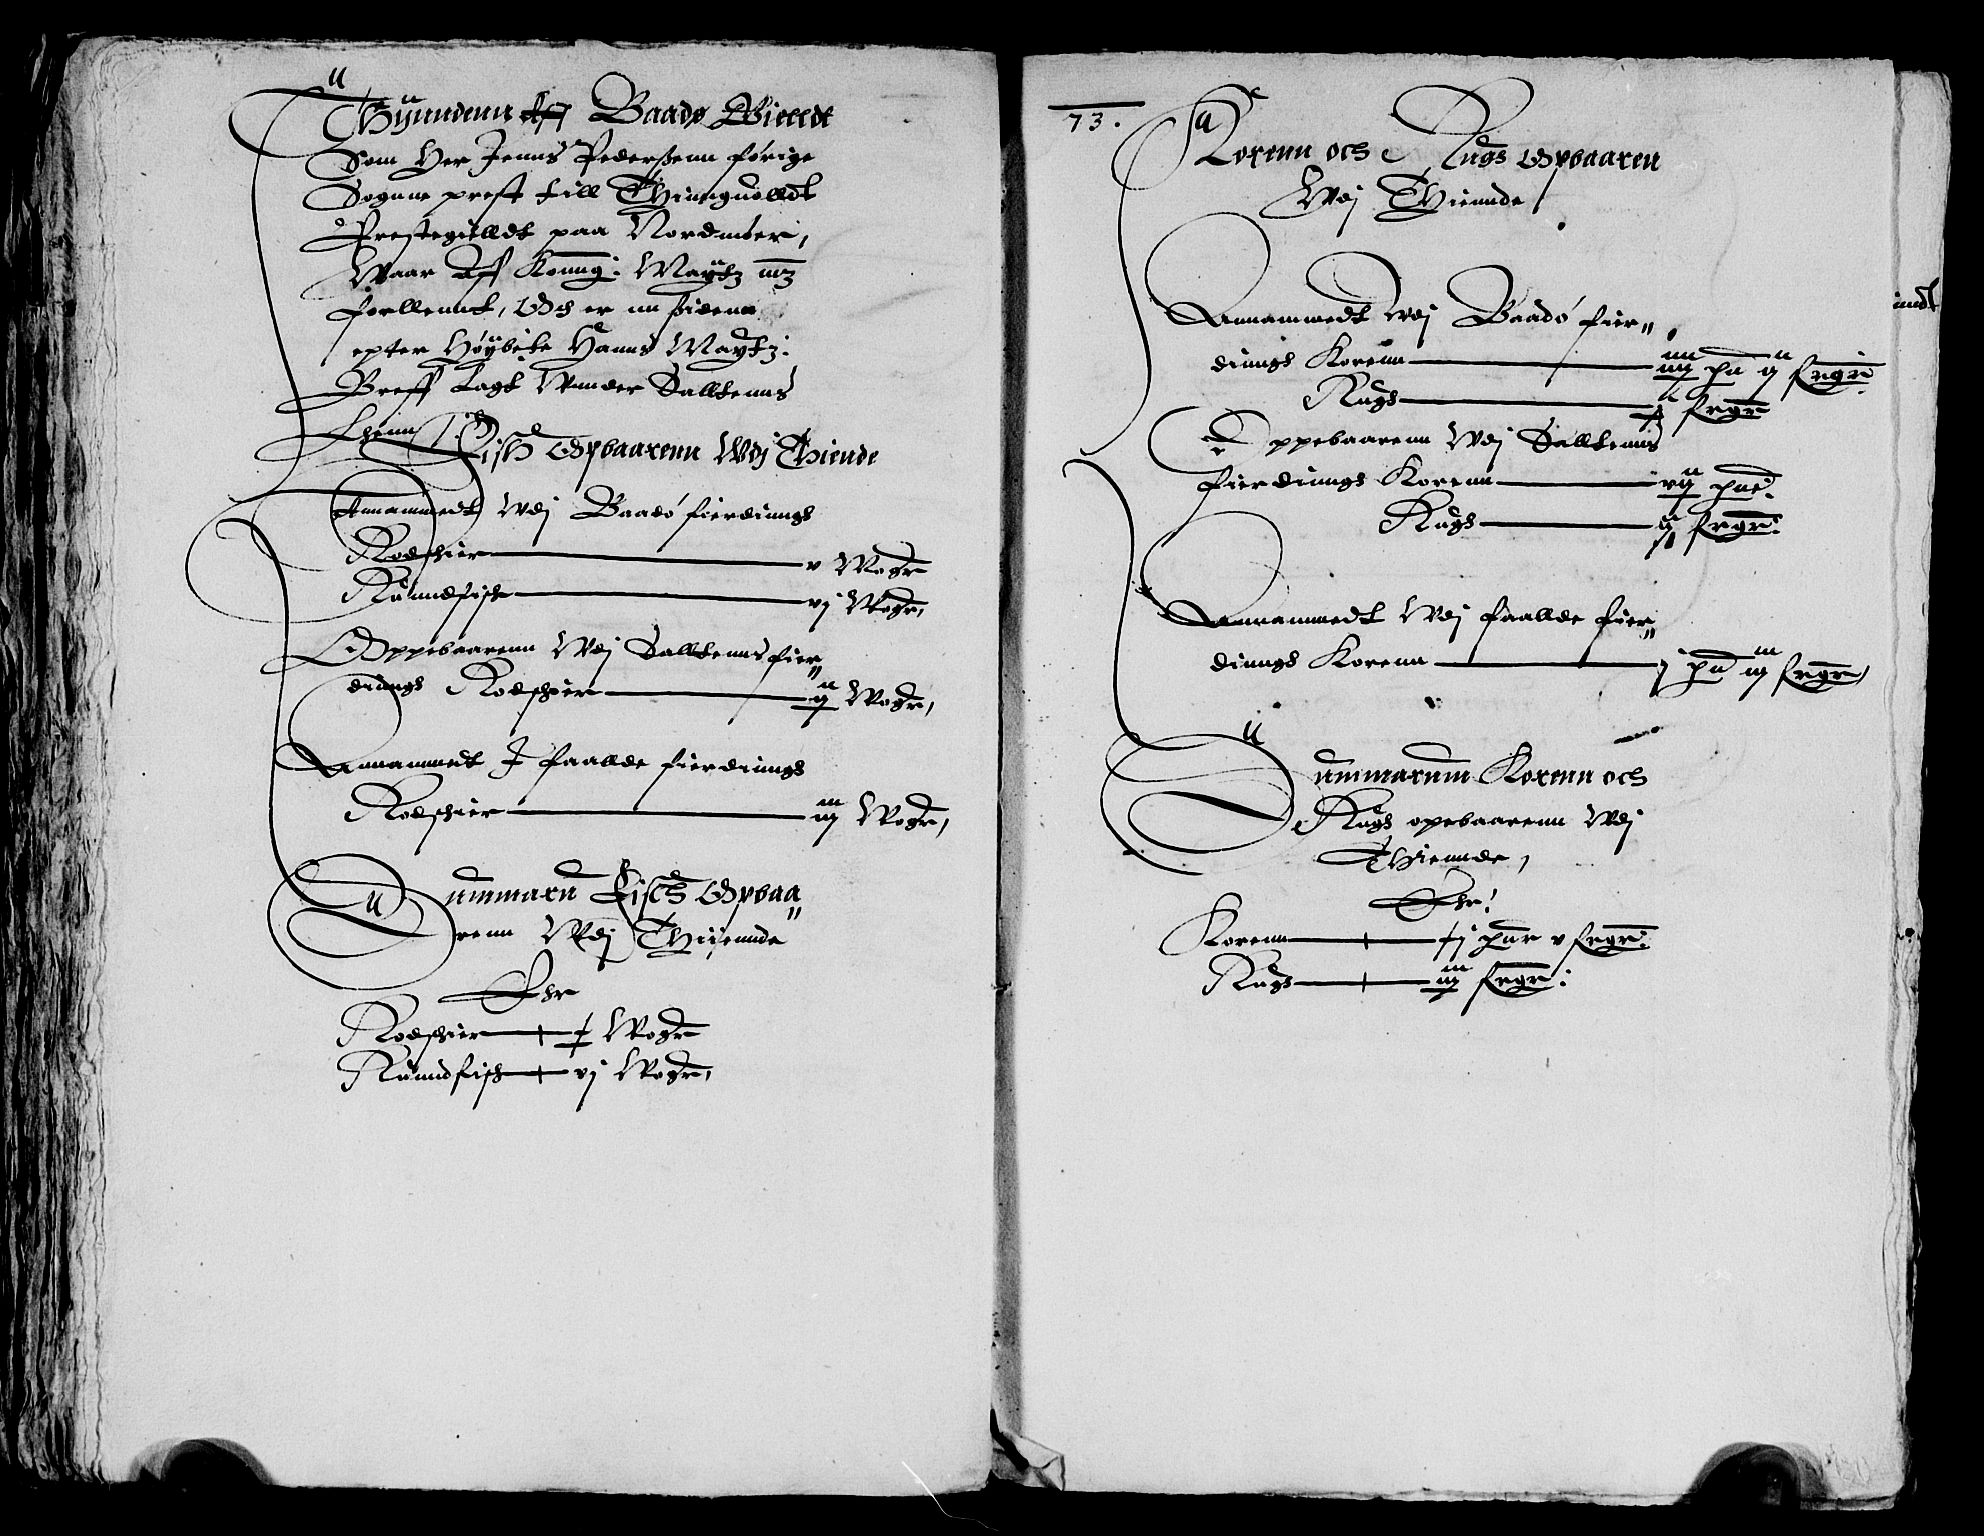 Thyenndenn aff Baadø Gielldt
Som Her Jenns Pederßenn forige
Sognne prest till Thinnguolldt
Prestegielldt paa Nordmøer,
Waar aff Konng: Maytz
forllenntt, Och er nu sidenn
epter Høybete Hanns Maytz:
Breff Lagt Wnnder Salltenns
Lhenn
Fisch Opbaarenn Wdj Thiende
Annammedt Wdj Baadø fierdinngs
Rodschier v Woger
Rundfisch vj Woger,
Oppebaarenn Wdj Salltenns fier„
dinngs Rodschier ij Woger,
Annammedt I faallde fierdinngs
Rodschier iij Woger,
Summaru Fisch Opbaa„
renn Wdj Thiennde
Ehr
Rodschier x Woger
Rundfisch vj Woger,
73.
Korenn och Rugs Opbaaren
Wdj Thiennde
Annammedt Wdj Baadø fier„
dinngs Korenn iiij pd ij frger.
Rugs frger
Oppebaarenn Wdj Salltenns
fierdinngs Korenn vij pd.
Rugs frger.
Annammedt Wdj faallde fier„
dinngs Korenn j pd iij frger,
Summarum Korenn och
Rugs opebaarenn Wdj
Thiennde,
Ehr!
Korenn xij pdr v frger.
Rugs iiij frger.